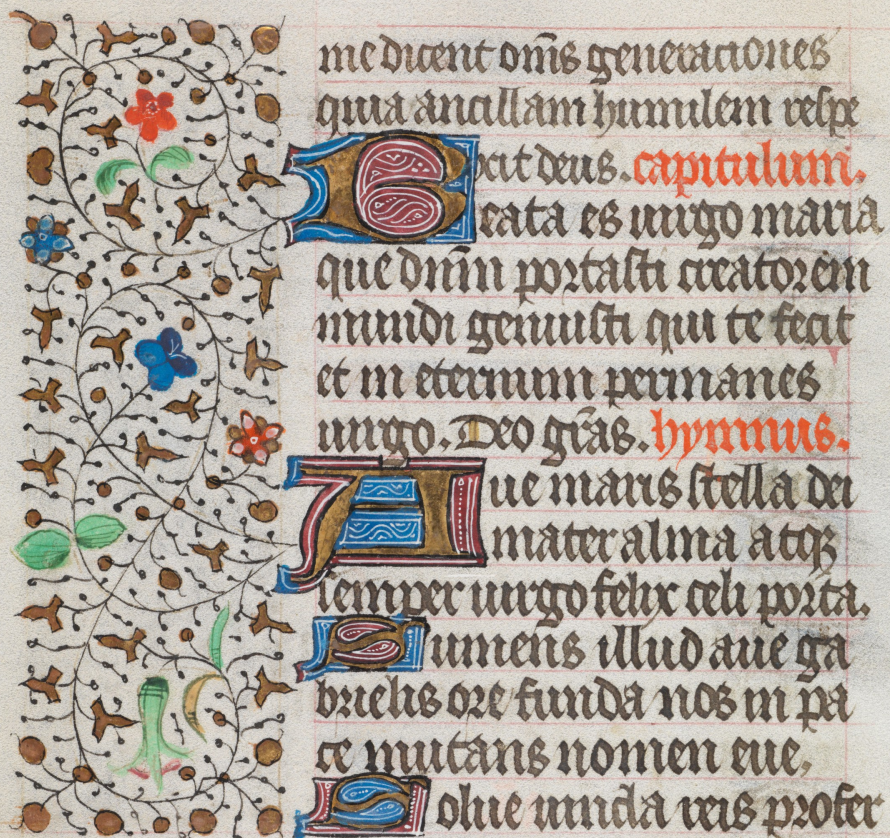 me dicent om̄s generationes
quia ancillam humilem respe
xit deus. capitulum.
Beata es uirgo maria
que dn̄m portasti creatorem
mundi genuisti qui te fecit
et in eternum permanes
uirgo. Deo gr̄as. hymnus.
Aue maris stella dei
mater alma atqꝫ
semper uirgo felix celi porta.
Sumens illud aue ga
brielis ore funda nos in pa
ce mutans nomen eue,
Solue uincla reis profer